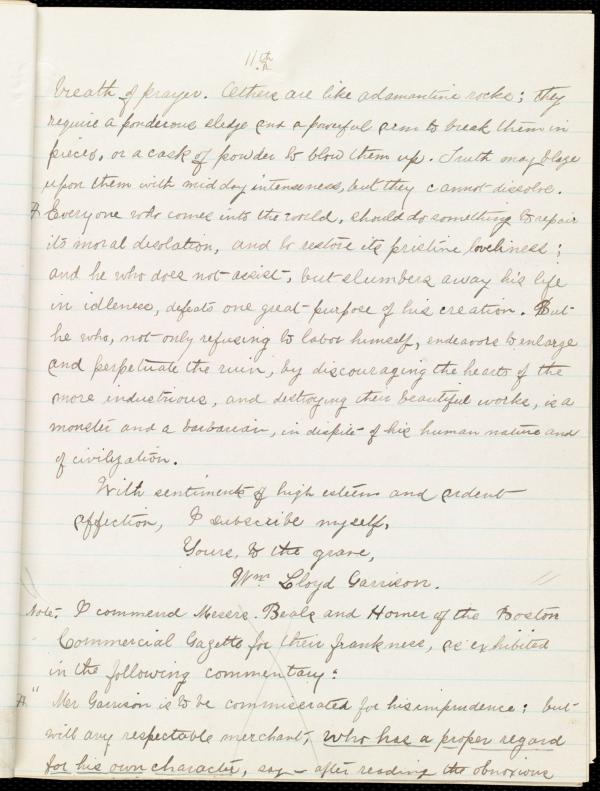 11th
breath of prayer. Others are like adamantine rocks; they
require a ponderous sledge and a powerful arm to break them in
pieces, or a cask of powder to blow them up. Truth may blaze
upon them with midday intenseness, but they cannot dissolve.
Everyone who comes into the world, should do something to repair
its moral desolation, and to restore its pristine loveliness;
and he who does not assist, but slumbers away his life
in idleness, defeats one great purpose of his creation. But
he who, not only refusing to labor himself, endeavors to enlarge
and perpetuate the ruin, by discouraging the hearts of the
more industrious, and destroying their beautiful works, is a
monster and a barbarian, in despite of his human nature and
of civilization.
With sentiments of high esteem and ardent
affection, I subscribe myself,
Yours, to the grave,
Wm. Lloyd Garrison.
Note. I commend Messrs. Beals and Homer of the Boston
Commercial Gazette for their frankness, as exhibited
in the following commentary:
" Mr Garrison is to be commiserated for his imprudence; but
will any respectable merchant, who has a proper regard
for his own character, say – after reading the obnoxious